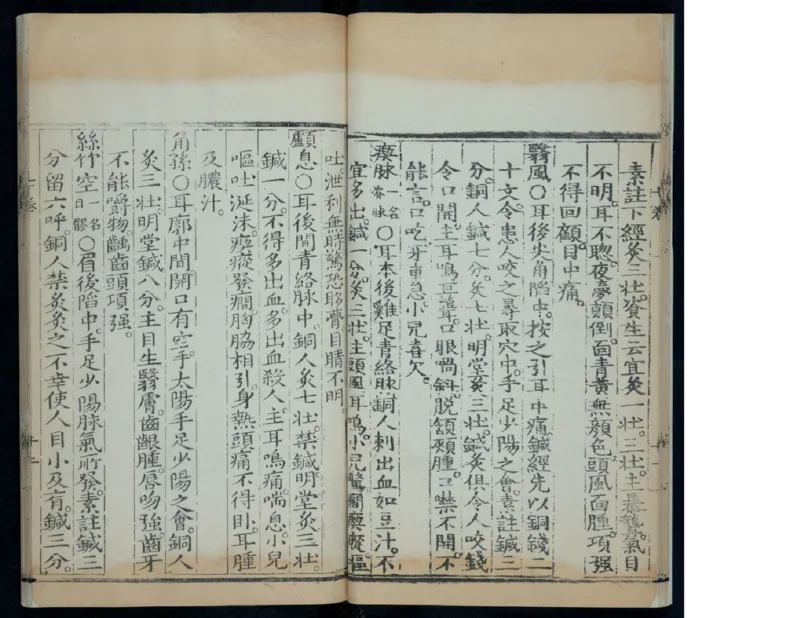 素註下經灸三壯資生云宜灸一壯三壯主暴聾氣目
不明耳不聰夜夢顛倒面青黃無顏色頭風面腫項强
不得回顧目中痛
翳風○耳後尖角陷中按之引耳中痛鍼經先以銅錢二
十文令患人咬之尋取穴中手足少陽之會素註鍼三
分銅人鍼七分灸七壯明堂灸三壯鍼灸俱令人咬錢
令口開主耳鳴耳聾口眼喎斜脫頷頰腫口噤不開不
能言口吃牙車急小兒喜欠
瘈脉一名資脉○耳本後雞足青絡脉銅人刺出血如豆汁不
宜多出鍼一分灸三壯主頭風耳鳴小兒驚癇瘈瘲嘔
吐泄利無時驚恐眵瞢目睛不明
顱息○耳後間青絡脉中銅人灸七壯禁鍼明堂灸三壯
鍼一分不得多出血多出血殺人主耳鳴痛喘息小兒
嘔吐涎沫瘈瘲發癇胸脇相引身熱頭痛不得臥耳腫
及膿汁
角孫○耳廓中間開口有空手太陽手足少陽之會銅人
灸三壯明堂鍼八分主目生翳膚齒齦腫唇吻強齒牙
不能嚼物齲齒頭項强
絲竹空一名目髎○眉後陷中手足少陽脉氣所發素註鍼三
分留六呼銅人禁灸灸之不幸使人目小及盲鍼三分